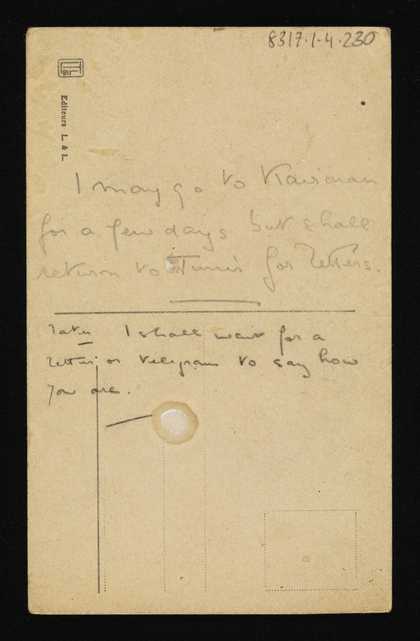 8317·1-4·230
LL
Editeurs L. & L.
I may go to Kairouan
for a few days but shall
return to Tunis for letters.
Later I shall wait for a
letter or telegram to say how
you are.